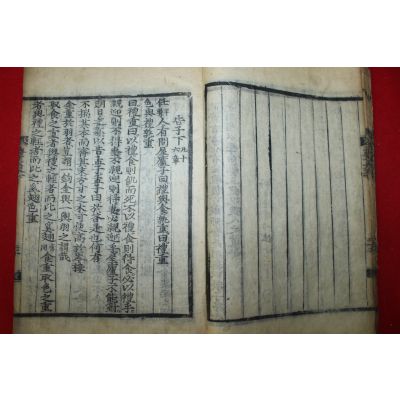 告子下 凡十六章
任人有問屋廬子曰禮與食孰重曰禮重
色與禮孰重
曰禮重曰以禮食則飢而死不以禮食則得食必以禮乎
親迎則不得妻不親迎則得妻必親迎乎屋廬子不能對
明日之鄒以告孟子孟子曰於答是也何有
不揣其本而齊其末方寸之木可使高於岑樓
金重於羽者豈謂一鉤金與一輿羽之謂哉
取食之重者與禮之輕者而比之奚翅食重取色之重
者與禮之輕者而比之奚翅色重